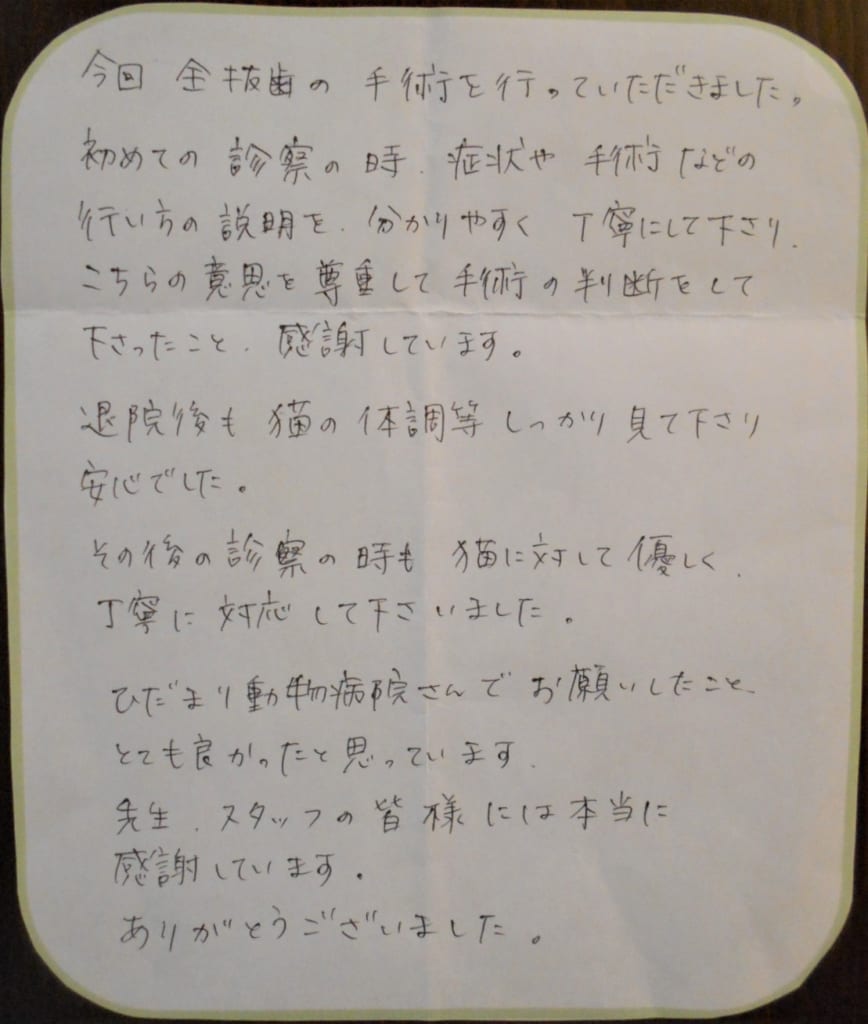 今回 全抜歯の 手術を行っていただきました。
初めての 診察の時、症状や 手術などの
行い方の 説明を、分かりやすく 丁寧にして下さり、
こちらの意思を尊重して手術の判断をして
下さったこと、感謝しています。
退院後も 猫の体調等しっかり見て下さり
安心でした。
その後の診察の時も 猫に対して優しく、
丁寧に対応して下さいました。
ひだまり動物病院さんで お願いしたこと、
とても良かったと思っています、
先生、スタッフの皆様には本当に
感謝しています。
ありがとうございました。